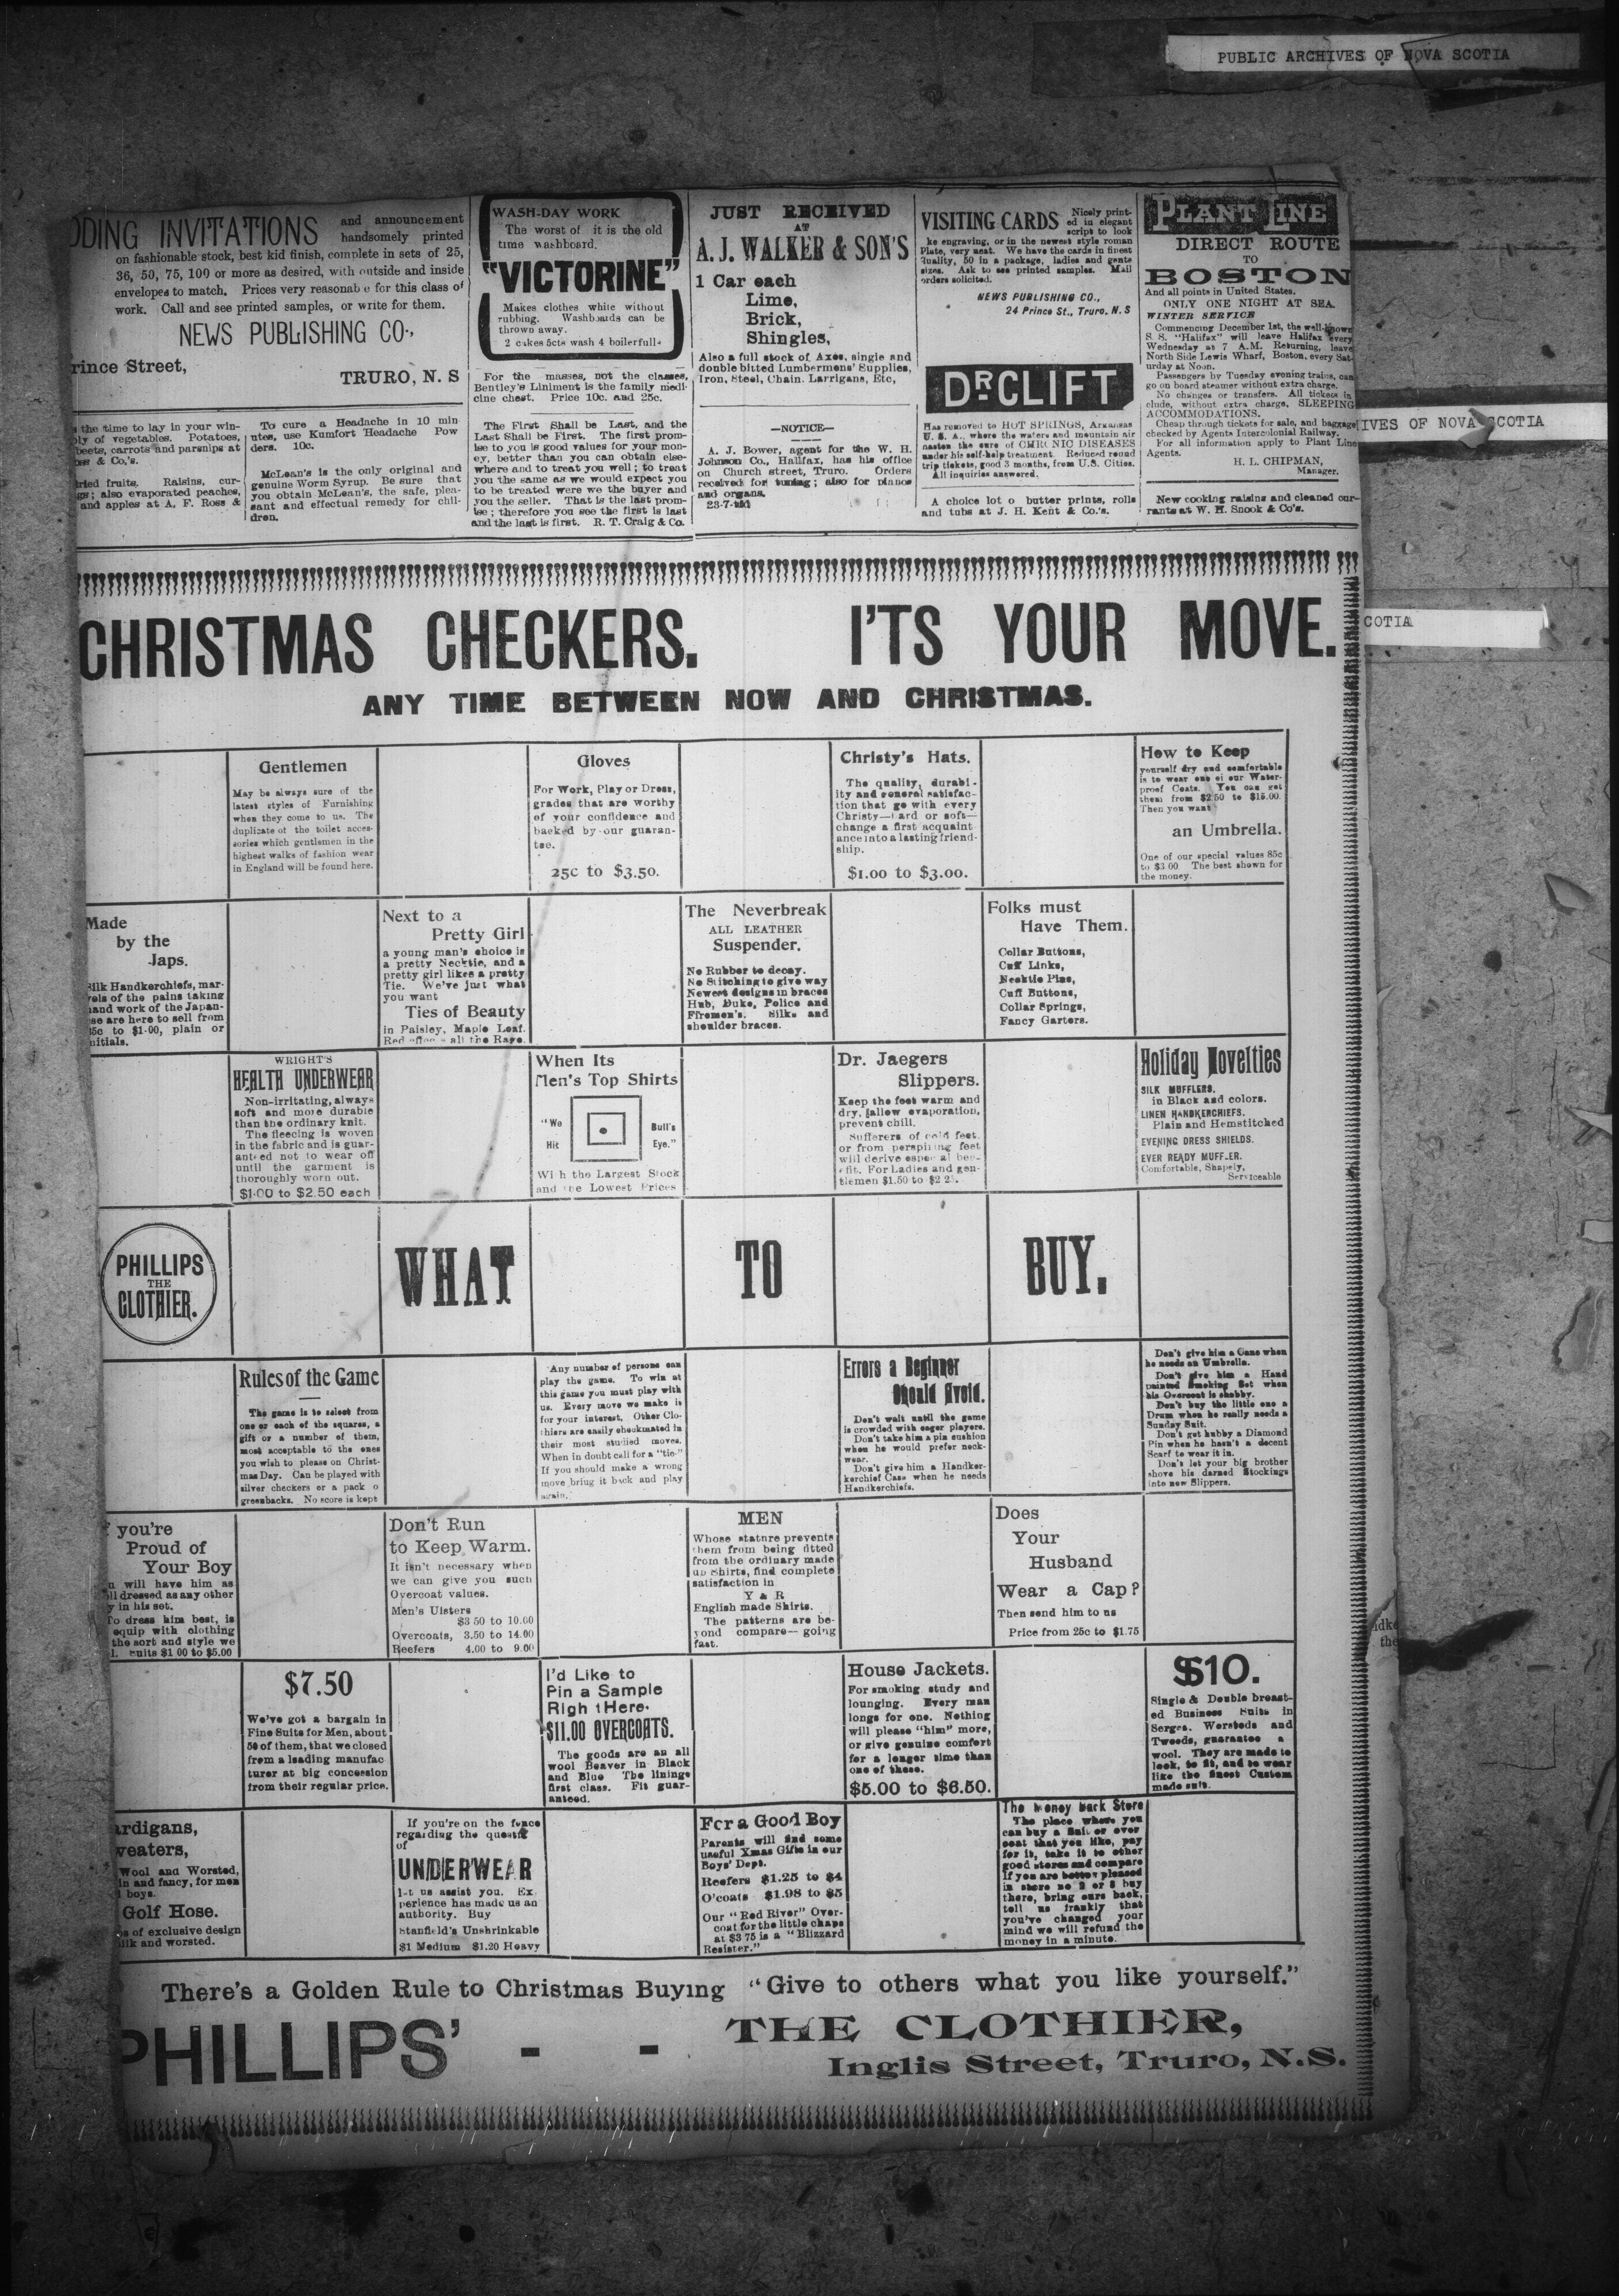 PUBLIC ARCHIVES OF NOVA SCOTIA
IVES OF NOVA SCOTIA
COTIA
DDING INVITATIONS
and announcement
handsomely printed
on fashionable stock, best kid finish, complete in sets of 25,
36, 50, 75, 100 or more as desired, with outside and inside
envelopes to match. Prices very reasonab e for this class of
work. Call and see printed samples, or write for them.
NEWS PUBLISHING CO.,
rince Street,
TRURO, N. S
the time to lay in your win-
ly of vegetables. Potatoes,
beets, carrots and parsnips at
ss & Co.'s.
tried fruits. Raisins, cur-
gs; also evaporated peaches,
and apples at A. F. Ross &
To cure a Headache in 10 min
utes, use Kumfort Headache Pow
ders. 10c.
McLean's is the only original and
genuine Worm Syrup. Be sure that
you obtain McLean's, the safe, plea-
sant and effectual remedy for chil-
dren.
WASH-DAY WORK
The worst of it is the old
time washboard.
"VICTORINE"
Makes clothes white without
rubbing. Washboards can be
thrown away.
2 cakes 5cts wash 4 boilerfulls
For the masses, not the classes,
Bentley's Liniment is the family medi-
cine chest. Price 10c. and 25c.
The First Shall be Last, and the
Last Shall be First. The first prom-
ise to you is good values for your mon-
ey, better than you can obtain else-
where and to treat you well; to treat
you the same as we would expect you
to be treated were we the buyer and
you the seller. That is the last prom-
ise; therefore you see the first is last
and the last is first. R. T. Craig & Co.
JUST RECEIVED
AT
A. J. WALKER & SON'S
1 Car each
Lime,
Brick,
Shingles,
Also a full stock of Axes, single and
double bitted Lumbermens' Supplies,
Iron, Steel, Chain. Larrigans, Etc,
—NOTICE—
A. J. Bower, agent for the W. H.
Johnson Co., Halifax, has his office
on Church street, Truro. Orders
received for tuning; also for pianos
and organs.
23-7-tid
VISITING CARDS
Nicely print-
ed in elegant
script to look
ke engraving, or in the newest style roman
Plate, very neat. We have the cards in finest
Quality, 50 in a package, ladies and gents
sizes. Ask to see printed samples. Mail
orders solicited.
NEWS PUBLISHING CO.,
24 Prince St., Truro, N. S
DR CLIFT
Has removed to HOT SPRINGS, Arkansas
U. S. A., where the waters and mountain air
hasten the cure of CHRONIC DISEASES
under his self-help treatment. Reduced round
trip tickets, good 3 months, from U.S. Cities.
All inquiries answered.
A choice lot o butter prints, rolls
and tubs at J. H. Kent & Co.'s.
PLANT LINE
DIRECT ROUTE
TO
BOSTON
And all points in United States.
ONLY ONE NIGHT AT SEA.
WINTER SERVICE
Commencing December 1st, the well-known
S. S. "Halifax" will leave Halifax every
Wednesday at 7 A.M. Returning, leave
North Side Lewis Wharf, Boston, every Sat-
urday at Noon.
Passengers by Tuesday evening trains, can
go on board steamer without extra charge.
No changes or transfers. All tickets in
clude, without extra charge, SLEEPING
ACCOMMODATIONS.
Cheap through tickets for sale, and baggage
checked by Agents Intercolonial Railway.
For all information apply to Plant Line
Agents.
H. L. CHIPMAN,
Manager.
New cooking raisins and cleaned cur-
rants at W. H. Snook & Co's.
CHRISTMAS CHECKERS. I'TS YOUR MOVE.
ANY TIME BETWEEN NOW AND CHRISTMAS.
Gentlemen
May be always sure of the
latest styles of Furnishing
when they come to us. The
duplicate of the toilet acces-
sories which gentlemen in the
highest walks of fashion wear
in England will be found here.
Gloves
For Work, Play or Dress,
grades that are worthy
of your confidence and
backed by our guaran-
tee.
25c to $3.50.
Christy's Hats.
The quality, durabi-
ity and general satisfac-
tion that go with every
Christy—hard or soft—
change a first acquaint
ance into a lasting friend-
ship.
$1.00 to $3.00.
How to Keep
yourself dry and comfortable
is to wear one of our Water-
proof Coats. You can get
them from $2.50 to $15.00.
Then you want
an Umbrella.
One of our special values 85c
to $3 00 The best shown for
the money.
Made
by the
Japs.
ilk Handkerchiefs, mar-
vels of the pains taking
hand work of the Japan-
se are here to sell from
5c to $1.00, plain or
nitials.
Next to a
Pretty Girl
a young man's choice is
a pretty Necktie, and a
pretty girl likes a pretty
Tie. We've just what
you want
Ties of Beauty
in Paisley, Maple Leaf.
all the Rage.
The Neverbreak
ALL LEATHER
Suspender.
No Rubber to decay.
No Stitching to give way
Newest designs in braces
Hub, Duke, Police and
Firemen's. Silks and
shoulder braces.
Folks must
Have Them.
Collar Buttons,
Cuff Links,
Necktie Pins,
Cuff Buttons,
Collar Springs,
Fancy Garters.
WRIGHT'S
HEALTH UNDERWEAR
Non-irritating, always
soft and more durable
than the ordinary knit.
The fleecing is woven
in the fabric and is guar-
anteed not to wear off
until the garment is
thoroughly worn out.
$1.00 to $2.50 each
When Its
Men's Top Shirts
"We Hit Bull's Eye."
With the Largest Stock
and the Lowest Prices
Dr. Jaegers
Slippers.
Keep the feet warm and
dry, fallow evaporation,
prevent chill.
Sufferers of cold feet,
or from perspiring feet
will derive especial ben-
efit. For Ladies and gen-
tlemen $1.50 to $2 25.
Holiday Novelties
SILK MUFFLERS.
in Black and colors.
LINEN HANDKERCHIEFS.
Plain and Hemstitched
EVENING DRESS SHIELDS.
EVER READY MUFFLER.
Comfortable, Shapely,
Serviceable
PHILLIPS
THE
CLOTHIER.
WHAT TO BUY.
Rules of the Game
The game is to select from
one or each of the squares, a
gift or a number of them,
most acceptable to the ones
you wish to please on Christ-
mas Day. Can be played with
silver checkers or a pack o
greenbacks. No score is kept
Any number of persons can
play the game. To win at
this game you must play with
us. Every move we make is
for your interest. Other Clo-
thiers are easily checkmated in
their most studied moves.
When in doubt call for a "tie."
If you should make a wrong
move bring it back and play
again.
Errors a Beginner
Should Avoid.
Don't wait until the game
is crowded with eager players.
Don't take him a pin cushion
when he would prefer neck-
wear.
Don't give him a Handker-
kerchief Case when he needs
Handkerchiefs.
Don't give him a Cane when
he needs an Umbrella.
Don't give him a Hand
painted Smoking Set when
his Overcoat is shabby.
Don't buy the little one a
Drum when he really needs a
Sunday Suit.
Don't get hubby a Diamond
Pin when he hasn't a decent
Scarf to wear it in.
Don't let your big brother
shove his darned Stockings
into new Slippers.
f you're
Proud of
Your Boy
u will have him as
ll dressed as any other
y in his set.
To dress him best, is
equip with clothing
the sort and style we
l. Suits $1 00 to $5.00
Don't Run
to Keep Warm.
It isn't necessary when
we can give you such
Overcoat values.
Men's Ulsters
$3 50 to 10.00
Overcoats, 3.50 to 14.00
Reefers 4.00 to 9.00
MEN
Whose statnre prevents
them from being fitted
from the ordinary made
up Shirts, find complete
satisfaction in
Y & R
English made Shirts.
The patterns are be-
yond compare—going
fast.
Does
Your
Husband
Wear a Cap?
Then send him to us
Price from 25c to $1.75
$7.50
We've got a bargain in
Fine Suits for Men, about
50 of them, that we closed
from a leading manufac
turer at big concession
from their regular price.
I'd Like to
Pin a Sample
Righ t Here.
$11.00 OVERCOATS.
The goods are an all
wool Beaver in Black
and Blue The linings
first class. Fit guar-
anteed.
House Jackets.
For smoking study and
lounging. Every man
longs for one. Nothing
will please "him" more,
or give genuine comfort
for a longer time than
one of these.
$5.00 to $6.50.
$10.
Single & Double breast-
ed Business Suits in
Serges, Worsteds and
Tweeds, guarantee a
wool. They are made to
look, to fit, and to wear
like the finest Custom
made suit.
ardigans,
weaters,
Wool and Worsted,
in and fancy, for men
boys.
Golf Hose.
s of exclusive design
ilk and worsted.
If you're on the fence
regarding the questi
of
UNDERWEAR
let us assist you. Ex
perience has made us an
authority. Buy
Stanfield's Unshrinkable
$1 Medium $1.20 Heavy
For a Good Boy
Parents will find some
useful Xmas Gifts in our
Boys' Dept.
Reefers $1.25 to $4
O'coats $1.98 to $5
Our "Red River" Over-
coat for the little chaps
at $3 75 is a "Blizzard
Resister."
The Money Back Store
The place where you
can buy a Suit or over
coat that you like, pay
for it, take it to other
good stores and compare
if you are better pleased
in store no 2 or 3 buy
there, bring ours back,
tell us frankly that
you've changed your
mind we will refund the
money in a minute.
There's a Golden Rule to Christmas Buying "Give to others what you like yourself."
PHILLIPS' - - THE CLOTHIER,
Inglis Street, Truro, N.S.